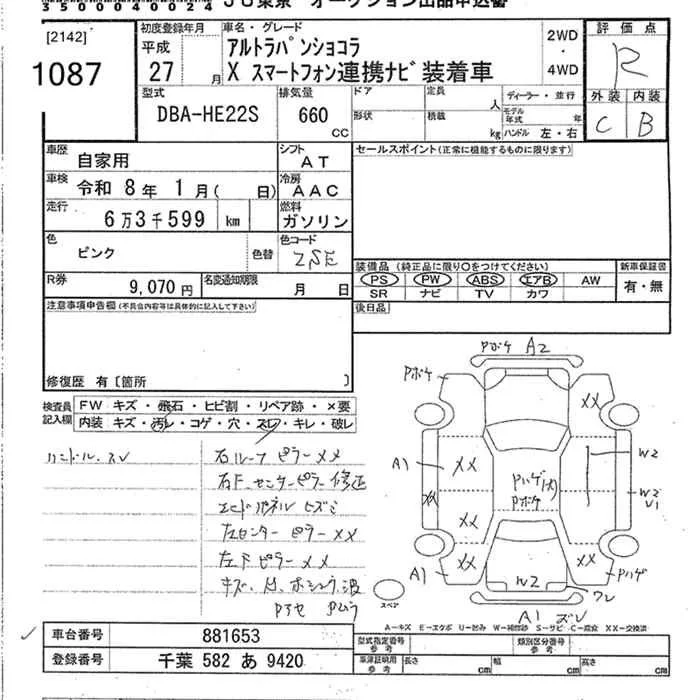 35040004024 JU東京 オークション出品申込書
[2142]
1087
初度登録年月
平成
27 月
車名・グレード
アルトラパンショコラ
X スマートフォン連携ナビ装着車
2WD
・
4WD
評価点
R
外装 内装
C B
型式
DBA-HE22S
排気量
660
CC
ドア 定員 人
形状 積載 kg
ディーラー・並行
モデル年式 年
ハンドル 左・右
車歴
自家用
シフト
AT
車検
令和 8年 1月( 日)
冷房
AAC
走行
6万3千599 km
燃料
ガソリン
色
ピンク
色替
色コード
ZSE
R券
9,070円
名変通知期限
月 日
セールスポイント(正常に機能するものに限ります)
装備品 (純正品に限り○をつけてください)
PS PW ABS エアB AW
SR ナビ TV カワ
新車保証書
有・無
後日品
注意事項申告欄(不具合内容等は具体的に記入して下さい)
修復歴 有〔箇所 〕
検査員記入欄
FW キズ・飛石・ヒビ割・リペア跡・×要
内装 キズ・汚レ・コゲ・穴・スレ・キレ・破レ
ハンドル スレ
右ルーフピラーメメ
右F.センターピラー修正
エンドパネルヒズミ
左センターピラーメメ
左Fピラーメメ
Pボケ A2
Pボケ
XX
A1
XX
W2
Pハゲ(大)
Pボケ
W2
U1
XX
XX
XX
XX
A1
W2
Pハゲ
ワレ
A1 ズレ
スペア
A-キズ E-エクボ U-凹み W-補修跡 S-サビ C-腐食 XX-交換済
車台番号
881653
登録番号
千葉 582 あ 9420
型式指定番号
参考
類別区分番号
参考
車検証明用
参考
長さ cm
幅 cm
高さ cm